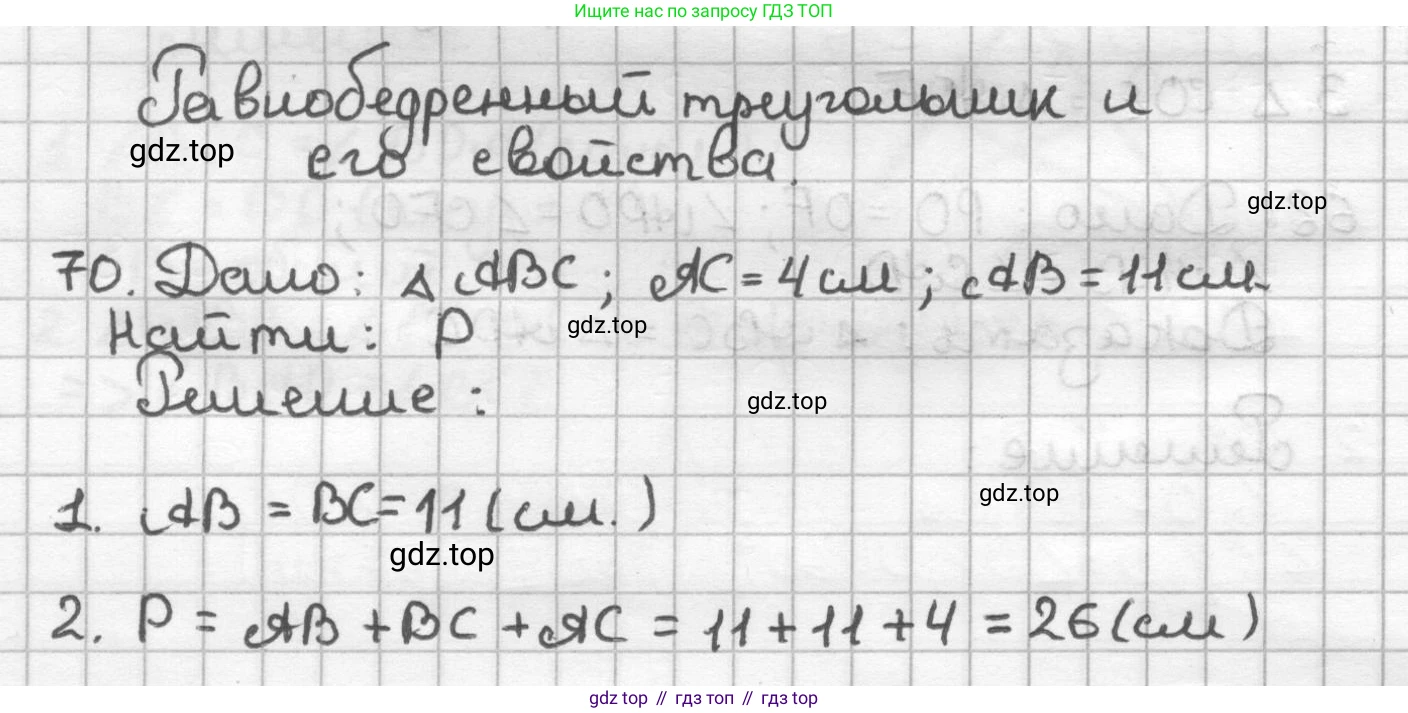 Ищите нас по запросу ГДЗ ТОП
Равнобедренный треугольник и
его свойства.
gdz.top
gdz.top
70. Дано: △ABC; AC = 4 см; AB = 11 см.
Найти: P
gdz.top
Решение:
gdz.top
1. AB = BC = 11 (см.)
gdz.top
gdz.top
2. P = AB + BC + AC = 11 + 11 + 4 = 26 (см)
gdz top // гдз топ // гдз top